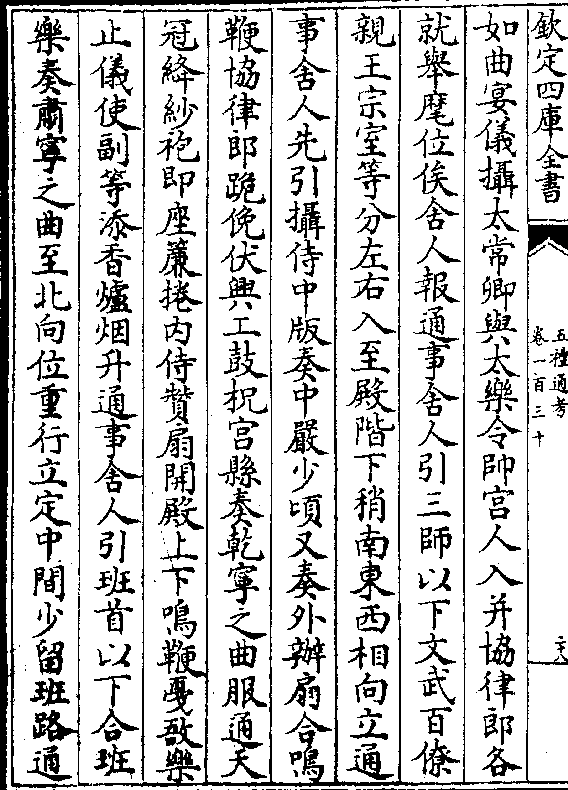 欽定四庫全書
五禮通考
卷一百三十
如曲宴儀攝太常卿與太樂令帥宫人入并協律郎各
就舉麾位俟舍人報通事舍人引三師以下文武百僚
親王宗室等分左右入至殿階下稍南東西相向立通
事舍人先引攝侍中版奏中嚴少頃又奏外辦扇合鳴
鞭協律郎跪俛伏興工鼓柷宫縣奏乾寧之曲服通天
冠絳紗袍即座簾捲内侍贊扇開殿上下鳴鞭戞敔樂
止儀使副等添香爐烟升通事舍人引班首以下合班
樂奏肅寧之曲至北向位重行立定中間少留班路通